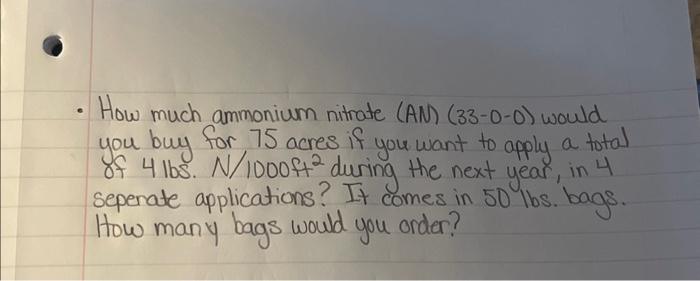 • How much ammonium nitrate (AN) (33-0-0) would
you buy for 75 acres if you want to apply a total
of 4 lbs. N/1000ft² during the next year, in 4
seperate applications? It comes in 50 lbs. bags.
How many bags would you order?